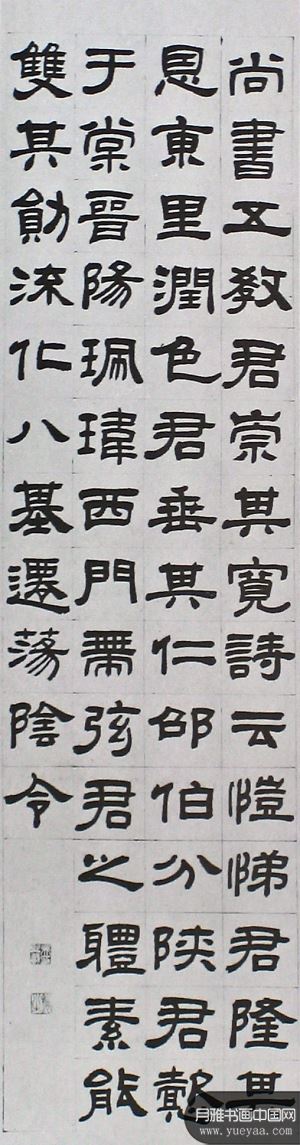 尚書五教君崇其寬詩云愷悌君隆其
恩東里潤色君垂其仁邵伯分陝君懿
于棠晉陽珮瑋西門帶弦君之體素能
雙其勛流化八基遷蕩陰令
月雅书画中国网
www.yueyaa.com